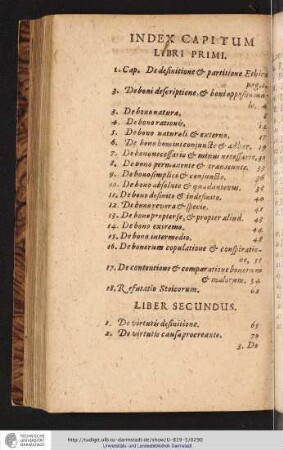 INDEX CAPITUM
LIBRI PRIMI.
1. Cap. De definitione & partitione Ethicæ
pag. 1.
2. De boni descriptione, & boni oppositu ma-
lo. 4
3. De bono naturæ. 8
4. De bono rationis. 12
5. De bono naturali & externo. 17
6. De bono homini conjuncto & adhær. 19
7. De bono necessario & minus necessario. 31
8. De bono permanente & transeunte. 33
9. De bono simplici & conjuncto. 36
10. De bono absoluto & quodantenus. 36
11. De bono definito & indefinito. 40
12. De bono re vera & specie. 41
13. De bono propter se, & propter aliud. 43
14. De bono extremo. 44
15. De bono intermedio. 48
16. De bonorum copulatione & conspiratio-
ne. 51
17. De contentione & comparatione bonorum
& malorum. 54
18. Refutatio Stoicorum. 62
LIBER SECUNDUS.
1. De virtutis definitione. 65
2. De virtutis causa procreante. 70
3. De
TECHNISCHE
UNIVERSITÄT
DARMSTADT
http://tudigit.ulb.tu-darmstadt.de/show/U-819-5/0290
Universitäts- und Landesbibliothek Darmstadt